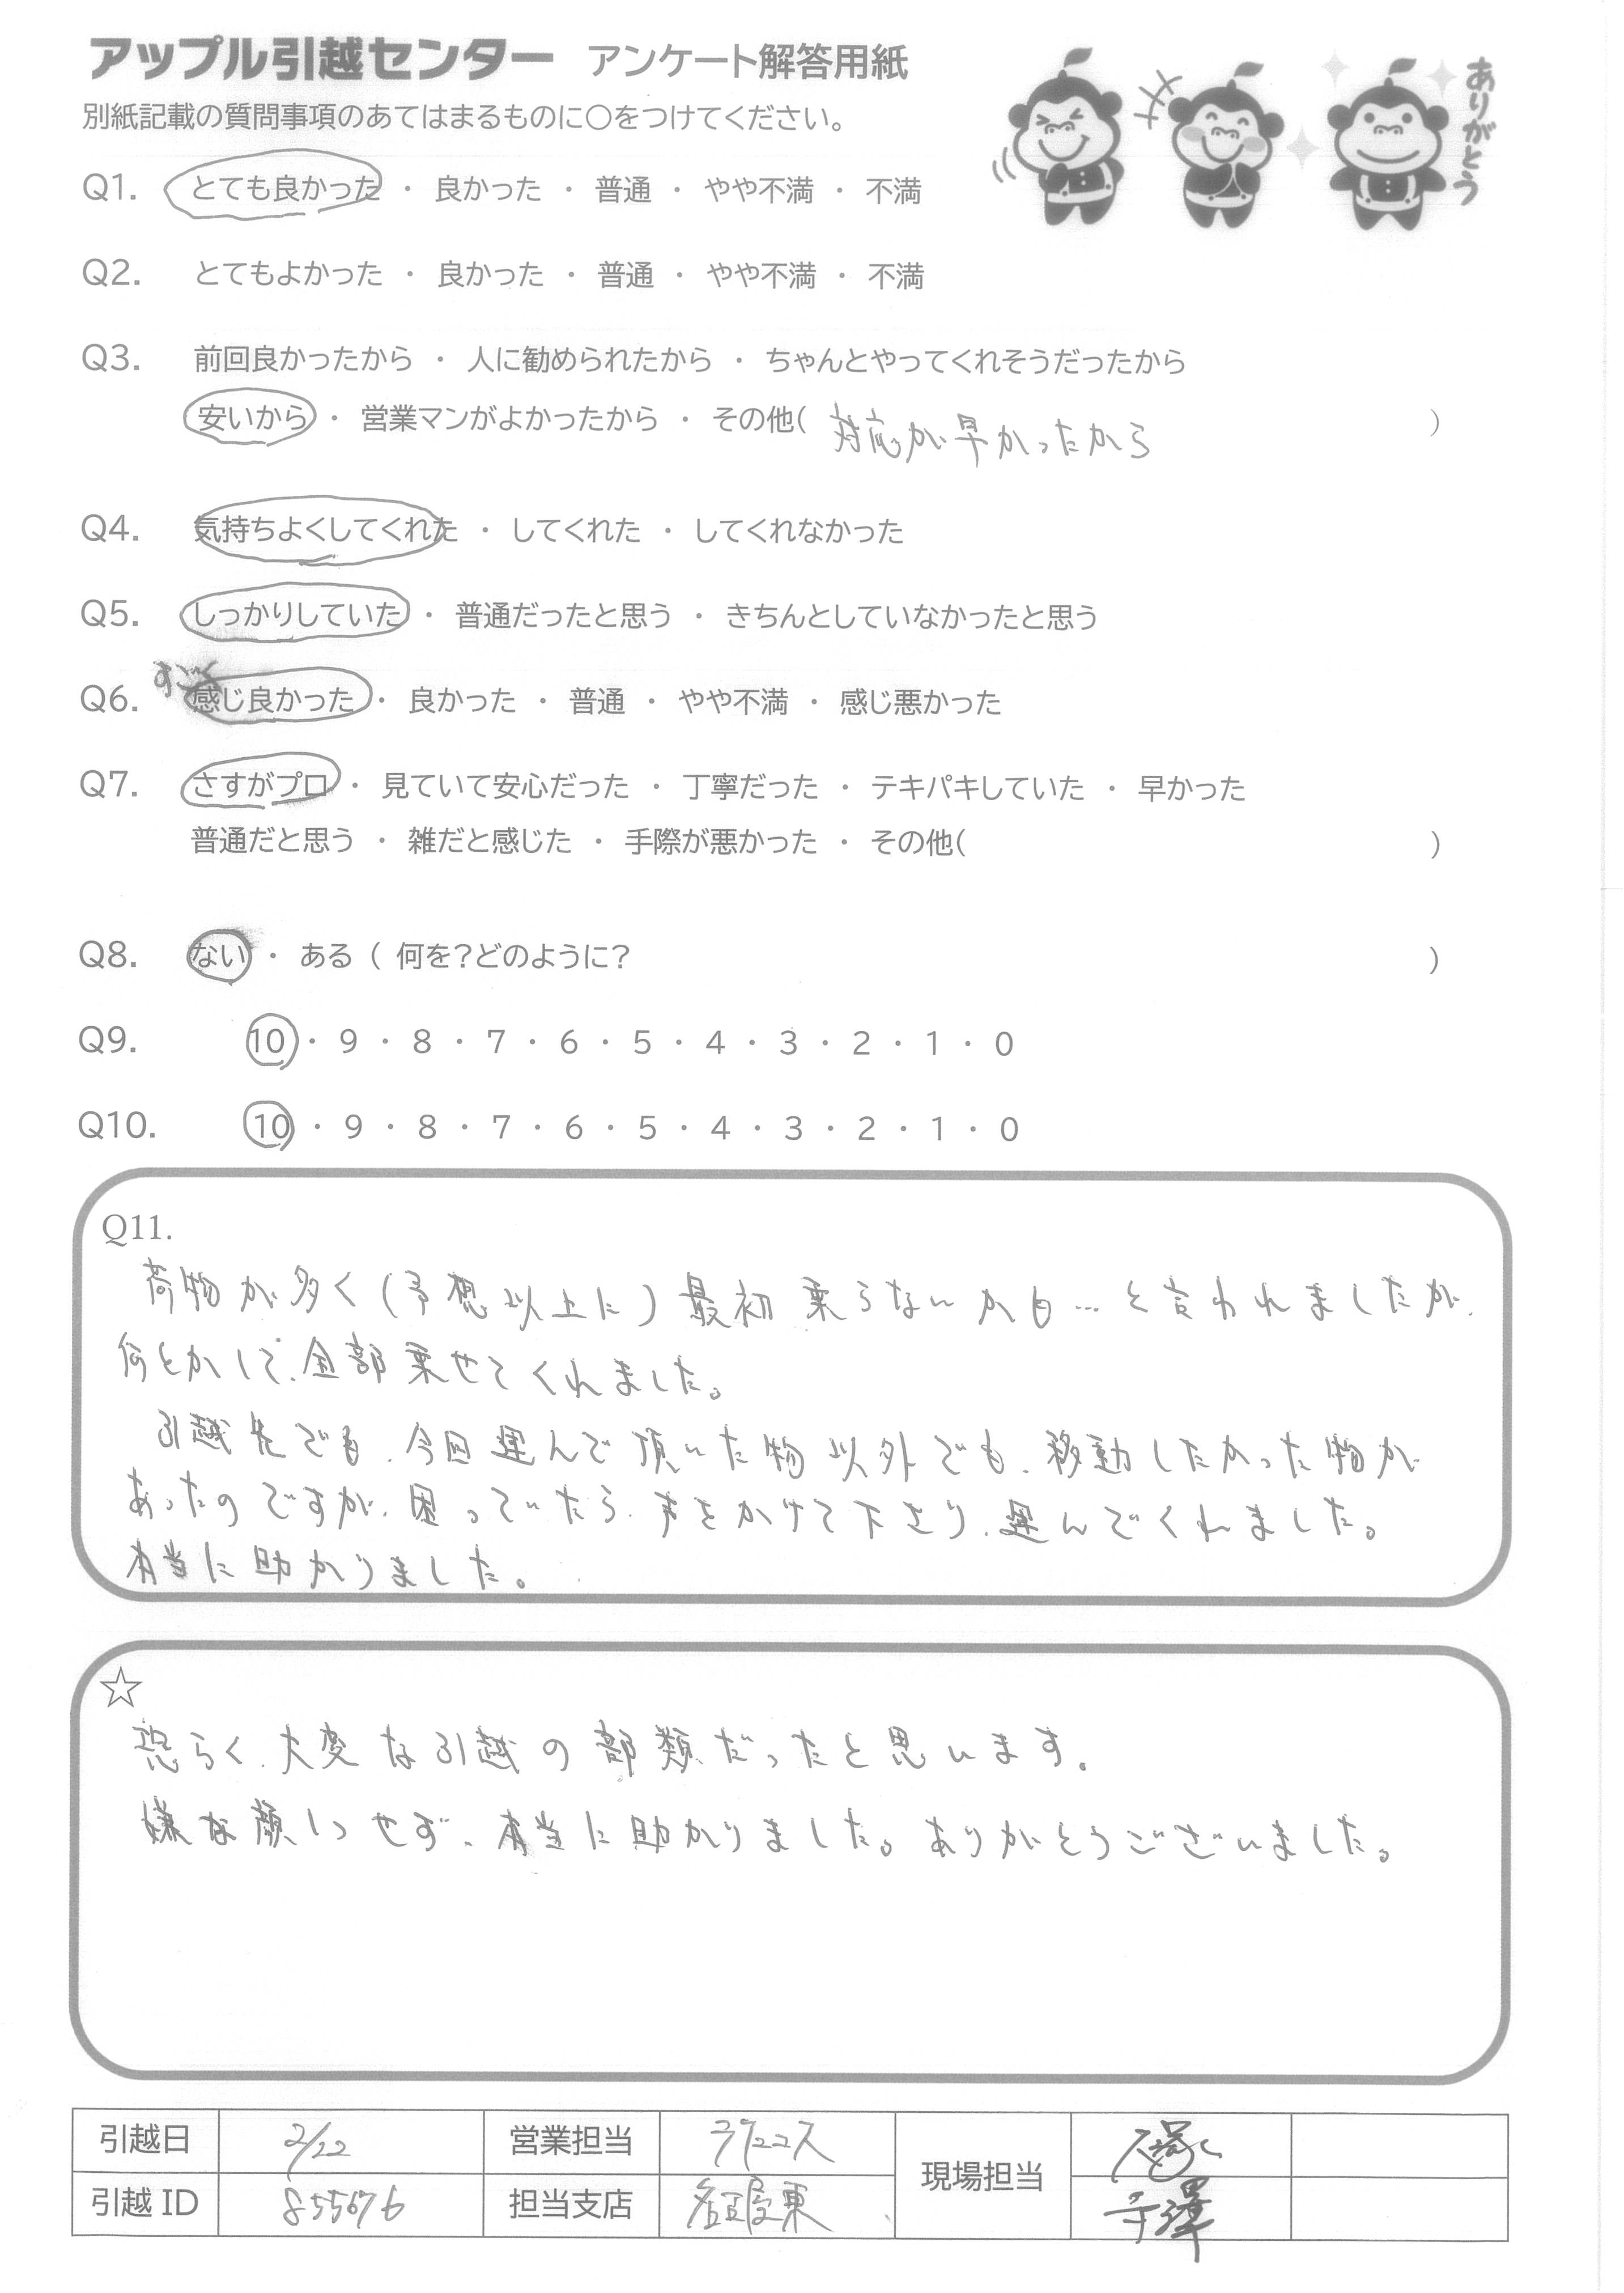 アップル引越センター アンケート解答用紙
別紙記載の質問事項のあてはまるものに○をつけてください。
ありがとう
Q1. とても良かった ・ 良かった ・ 普通 ・ やや不満 ・ 不満
Q2. とてもよかった ・ 良かった ・ 普通 ・ やや不満 ・ 不満
Q3. 前回良かったから ・ 人に勧められたから ・ ちゃんとやってくれそうだったから
安いから ・ 営業マンがよかったから ・ その他( 対応が早かったから )
Q4. 気持ちよくしてくれた ・ してくれた ・ してくれなかった
Q5. しっかりしていた ・ 普通だったと思う ・ きちんとしていなかったと思う
すごく
Q6. 感じ良かった ・ 良かった ・ 普通 ・ やや不満 ・ 感じ悪かった
Q7. さすがプロ ・ 見ていて安心だった ・ 丁寧だった ・ テキパキしていた ・ 早かった
普通だと思う ・ 雑だと感じた ・ 手際が悪かった ・ その他( )
Q8. ない ・ ある ( 何を?どのように? )
Q9. 10 ・ 9 ・ 8 ・ 7 ・ 6 ・ 5 ・ 4 ・ 3 ・ 2 ・ 1 ・ 0
Q10. 10 ・ 9 ・ 8 ・ 7 ・ 6 ・ 5 ・ 4 ・ 3 ・ 2 ・ 1 ・ 0
Q11.
荷物が多く(予想以上に)最初乗らないかも…と言われましたが、
何とかして、全部乗せてくれました。
引越先でも、今回運んで頂いた物以外でも、移動したかった物が
あったのですが、困っていたら、声をかけて下さり、運んでくれました。
本当に助かりました。
☆
恐らく、大変な引越の部類だったと思います。
嫌な顔1つせず、本当に助かりました。ありがとうございました。
引越日 2/22 営業担当 現場担当
引越ID 855676 担当支店 名古屋東 寺澤